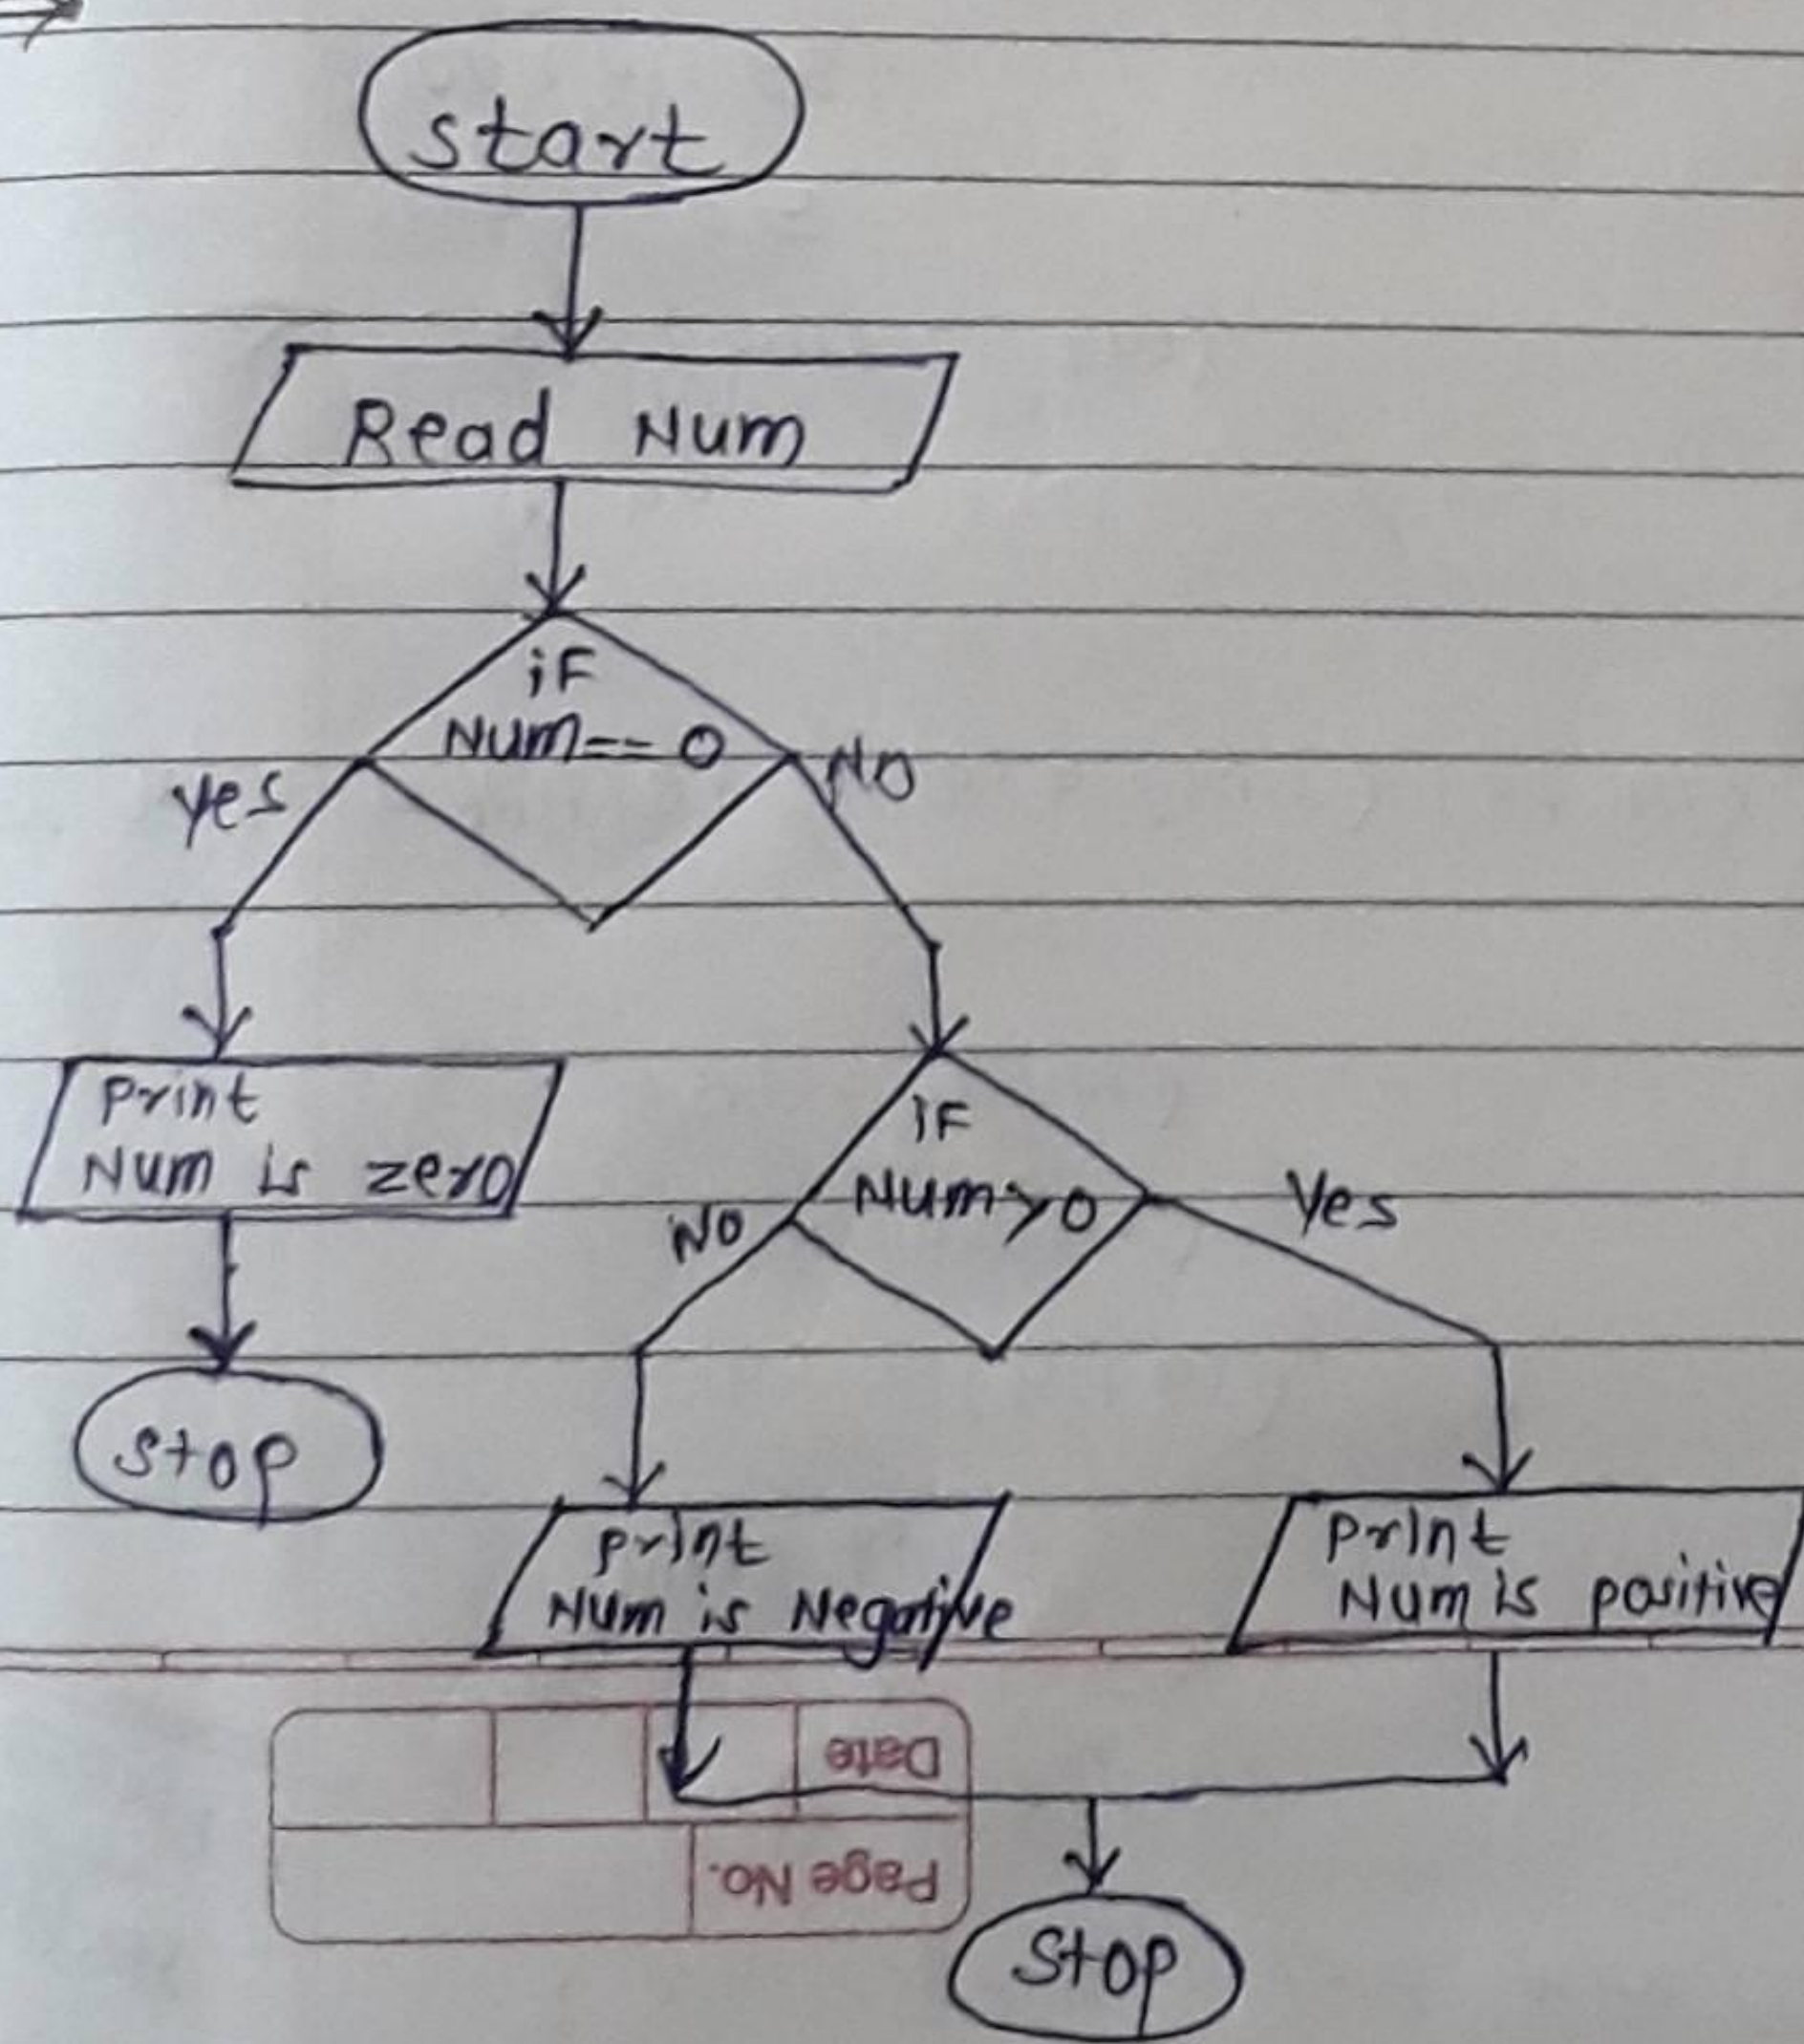 start
Read Num
iF
Num == 0
yes
NO
print
Num is zero
iF
Num > 0
NO
Yes
stop
print
Num is Negative
print
Num is positive
Date
Page No.
Stop